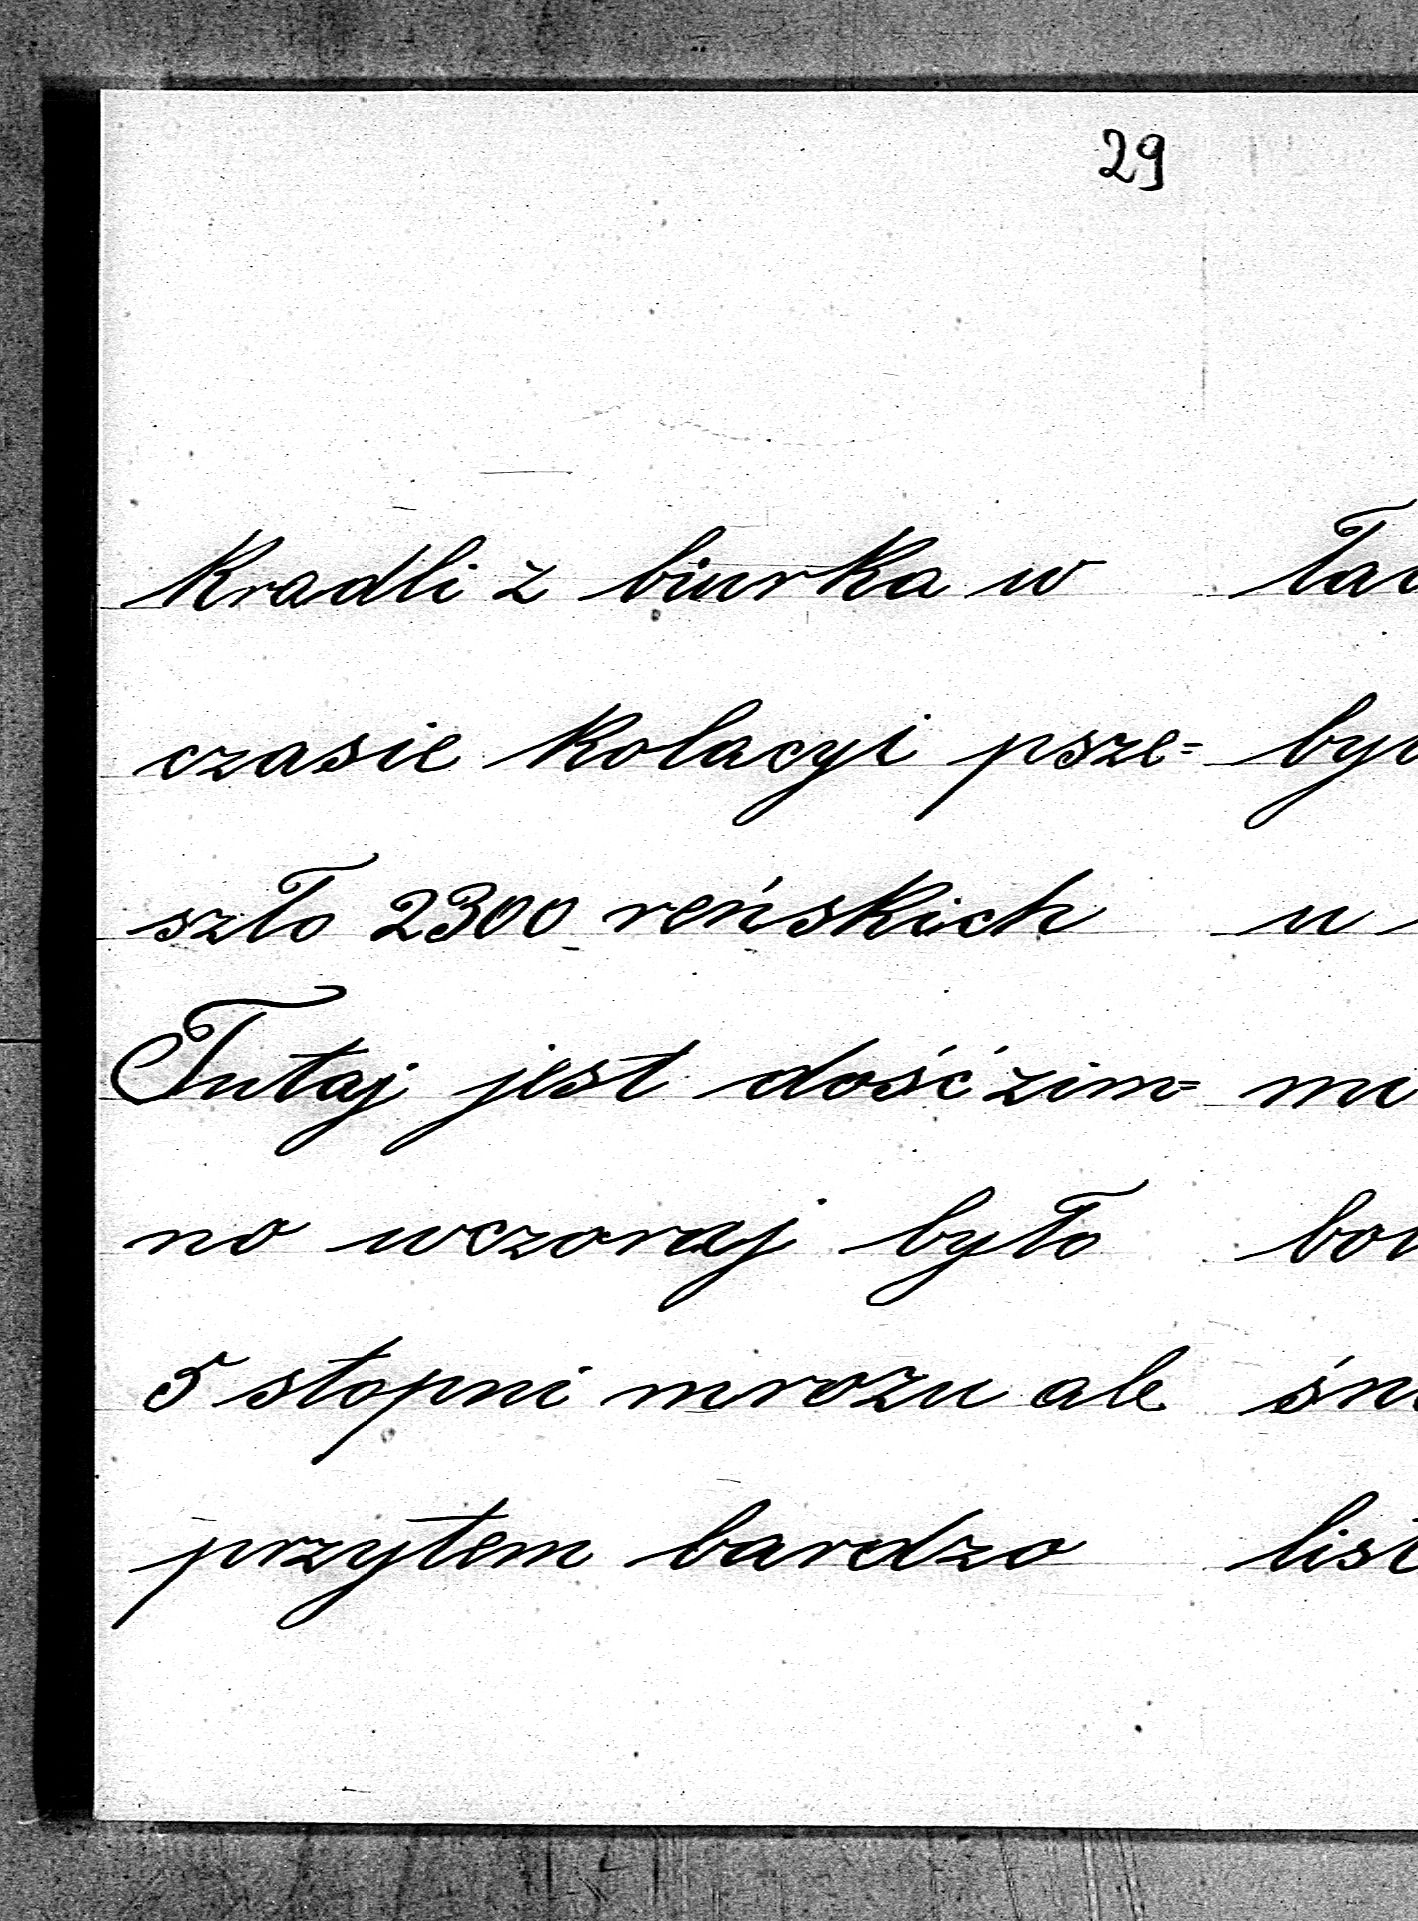 29
kradli z biurka w
czasie kolacyi psze=
szło 2300 reńskich
Tutaj jest dość zim=
no wczoraj było
5 stopni mrozu ale
przytem bardzo